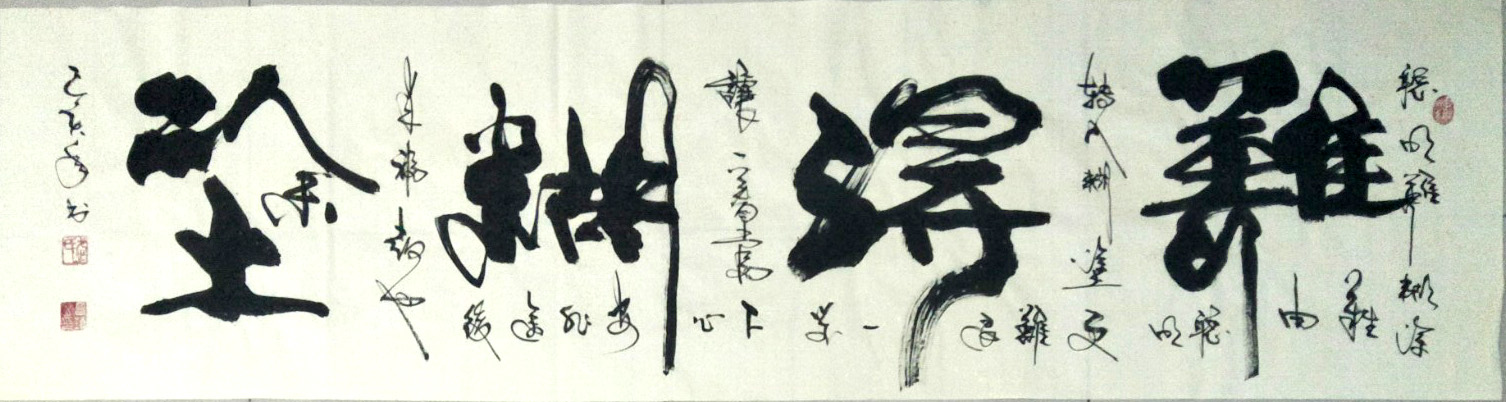 難得糊塗
聪明難糊涂
難由
聰明
轉入糊塗更
難放
一著
讓一步當
下心
安非途後
来福報也
己亥年书